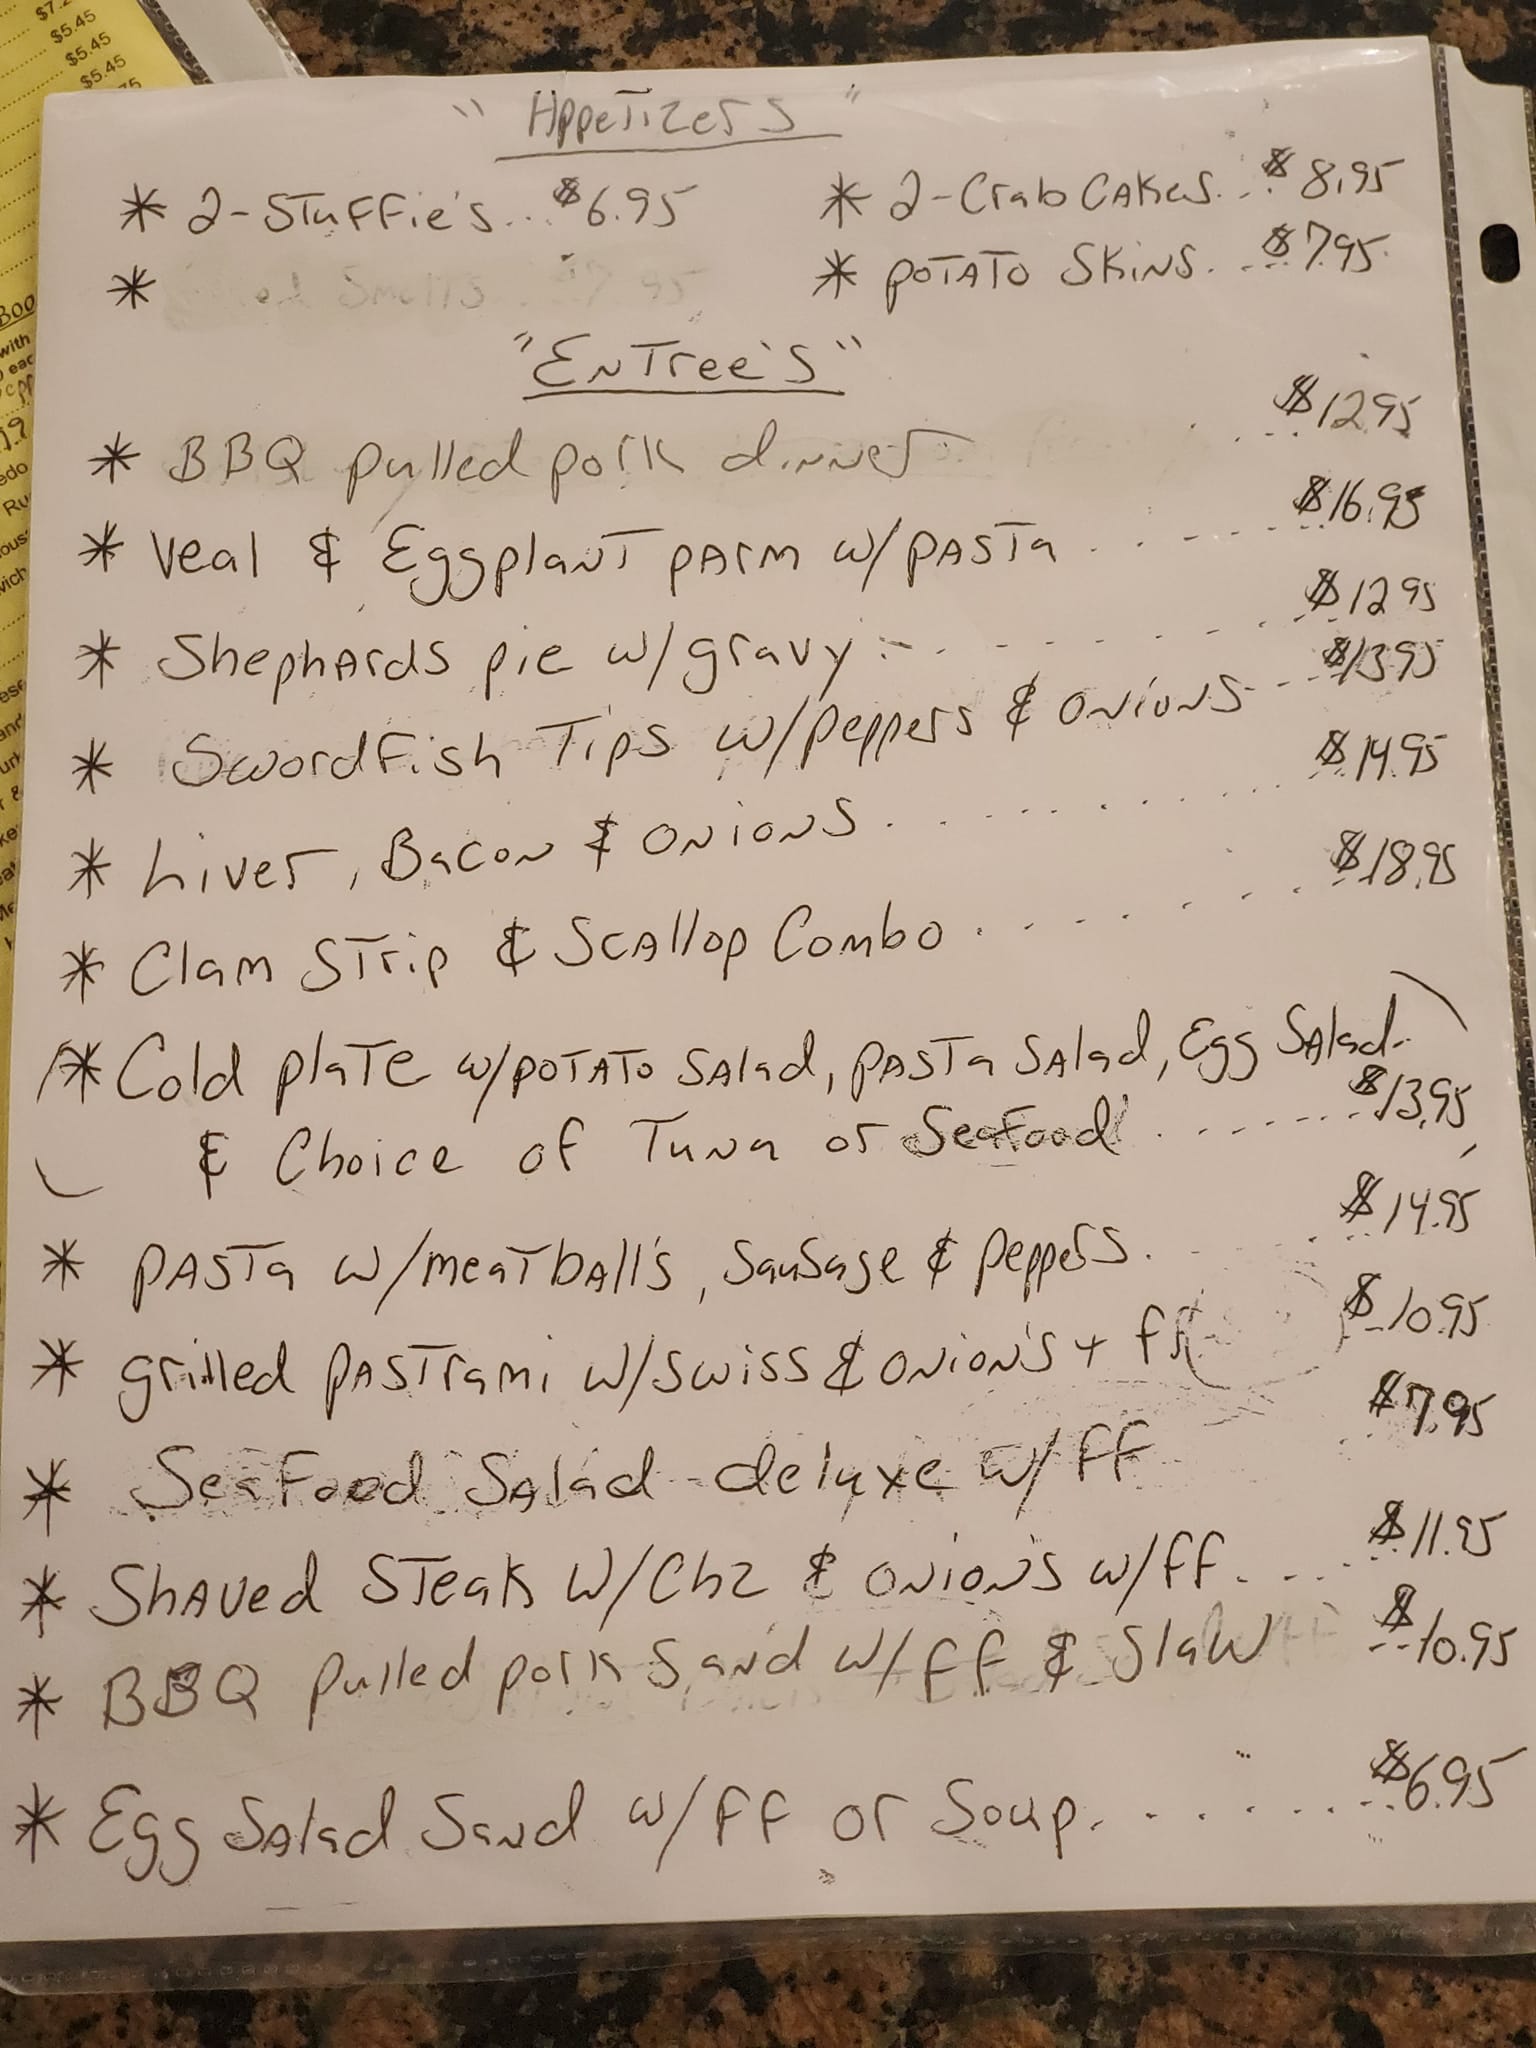 $5.45
$5.45
$5.45
"Appetizers"
* 2-Stuffie's... $6.95
* 2-Crab Cakes... $8.95
*
* Potato Skins. ... $7.95
"Entree's"
* BBQ pulled pork dinner $12.95
* Veal & Eggplant parm w/pasta ...... $16.95
* Shephards pie w/gravy ........ $12.95
* Swordfish Tips w/peppers & onions ... $13.95
* Liver, Bacon & onions ......... $14.95
* Clam Strip & Scallop Combo ....... $18.95
(* Cold plate w/potato salad, pasta salad, Egg Salad
& Choice of Tuna or Seafood ....... $13.95)
* Pasta w/meatball's, sausage & peppers. .... $14.95
* grilled pastrami w/swiss & onion's + ff $10.95
* Seafood Salad deluxe w/ff $7.95
* Shaved Steak w/Chz & onion's w/ff .... $11.95
* BBQ pulled pork Sand w/ff & Slaw $10.95
* Egg Salad Sand w/ff or Soup. ....... $6.95